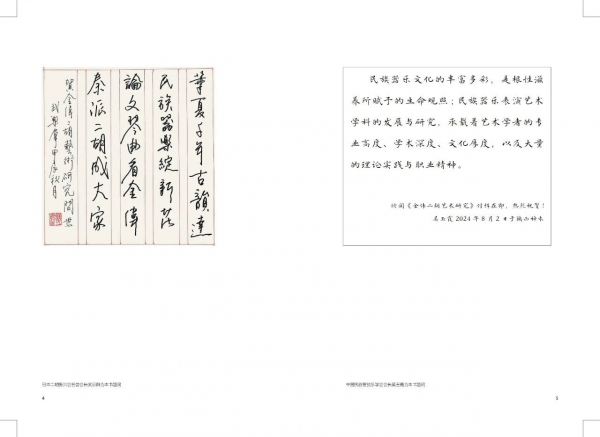 華夏千年古韻達
民族器樂綻新花
論文琴曲看金偉
秦派二胡成大家
賀金偉二胡藝術研究問世
甲辰秋月
4
民族器乐文化的丰富多彩，是根性滋
养所赋予的生命观照；民族器乐表演艺术
学科的发展与研究，承载着艺术学者的专
业高度、学术深度、文化厚度，以及大量
的理论实践与职业精神。
欣闻《金伟二胡艺术研究》付梓在即，热烈祝贺！
吴玉霞 2024 年 8 月 2 日于
中国民族管弦乐学会会长吴玉霞为本书题词
5